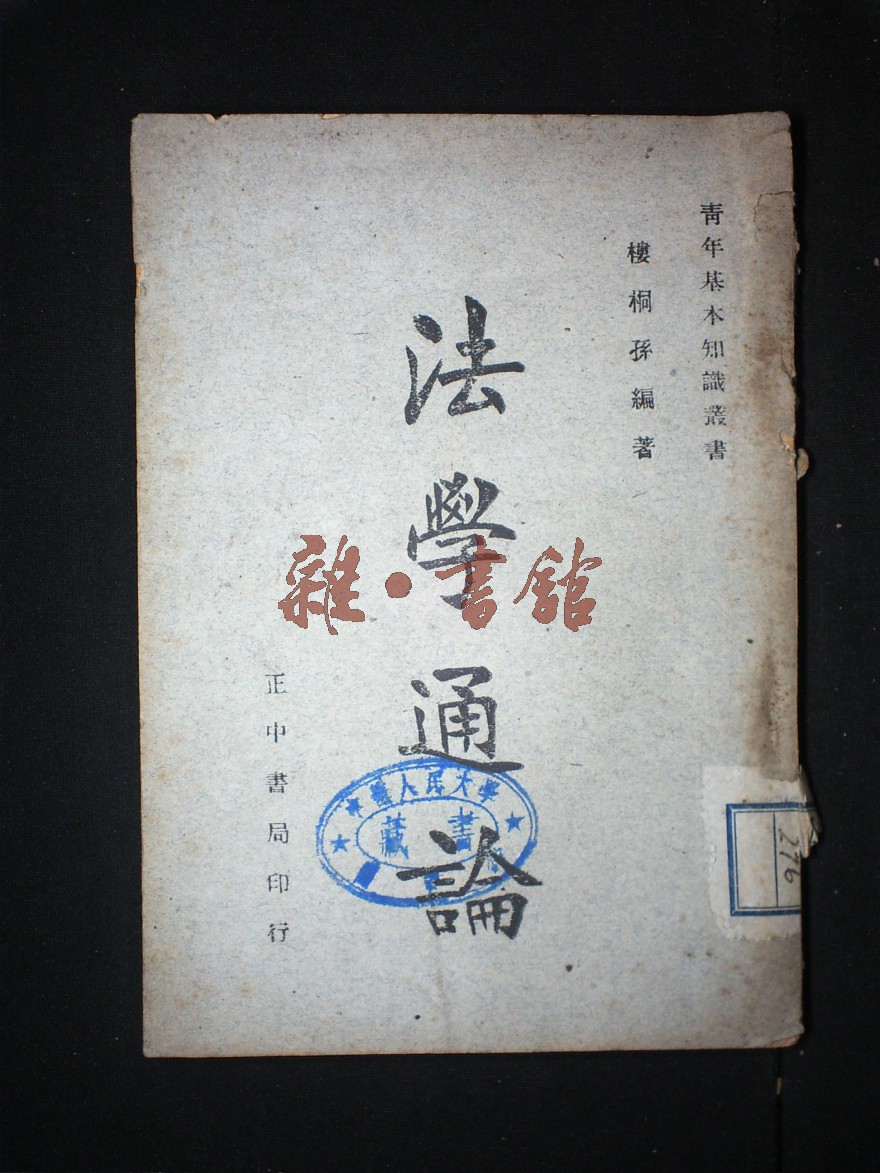 青年基本知識叢書
樓桐孫編著
法學通論
正中書局印行
雜·書舘
人民大學
藏書
276